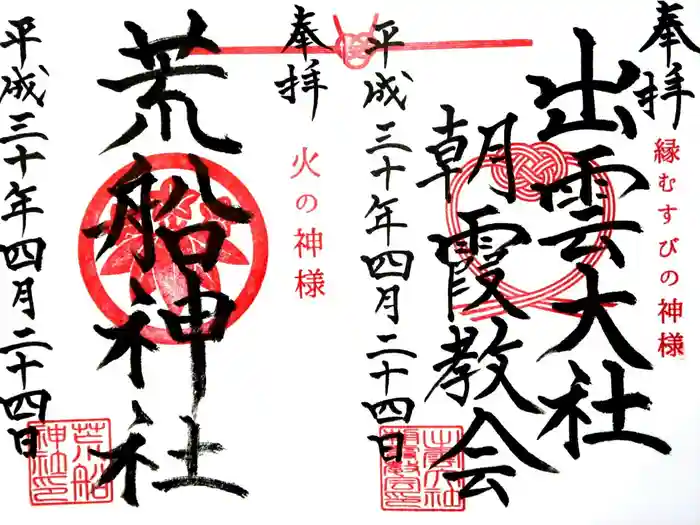 奉拝
縁むすびの神様
出雲大社
朝霞教会
平成三十年四月二十四日
奉拝
火の神様
荒船神社
平成三十年四月二十四日
荒船
神社印